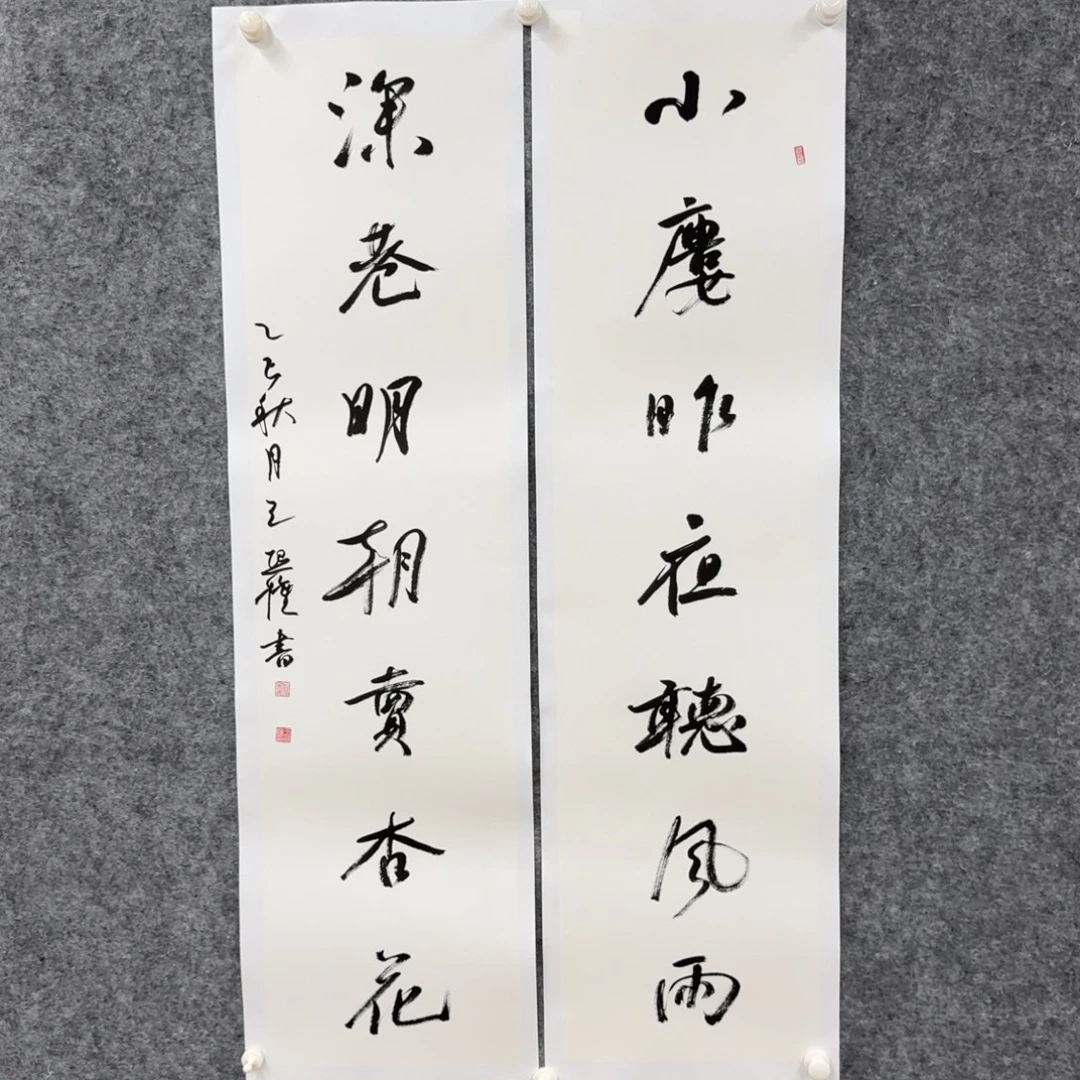 小廔昨夜聽風雨
深巷明朝賣杏花
乙巳秋月王書